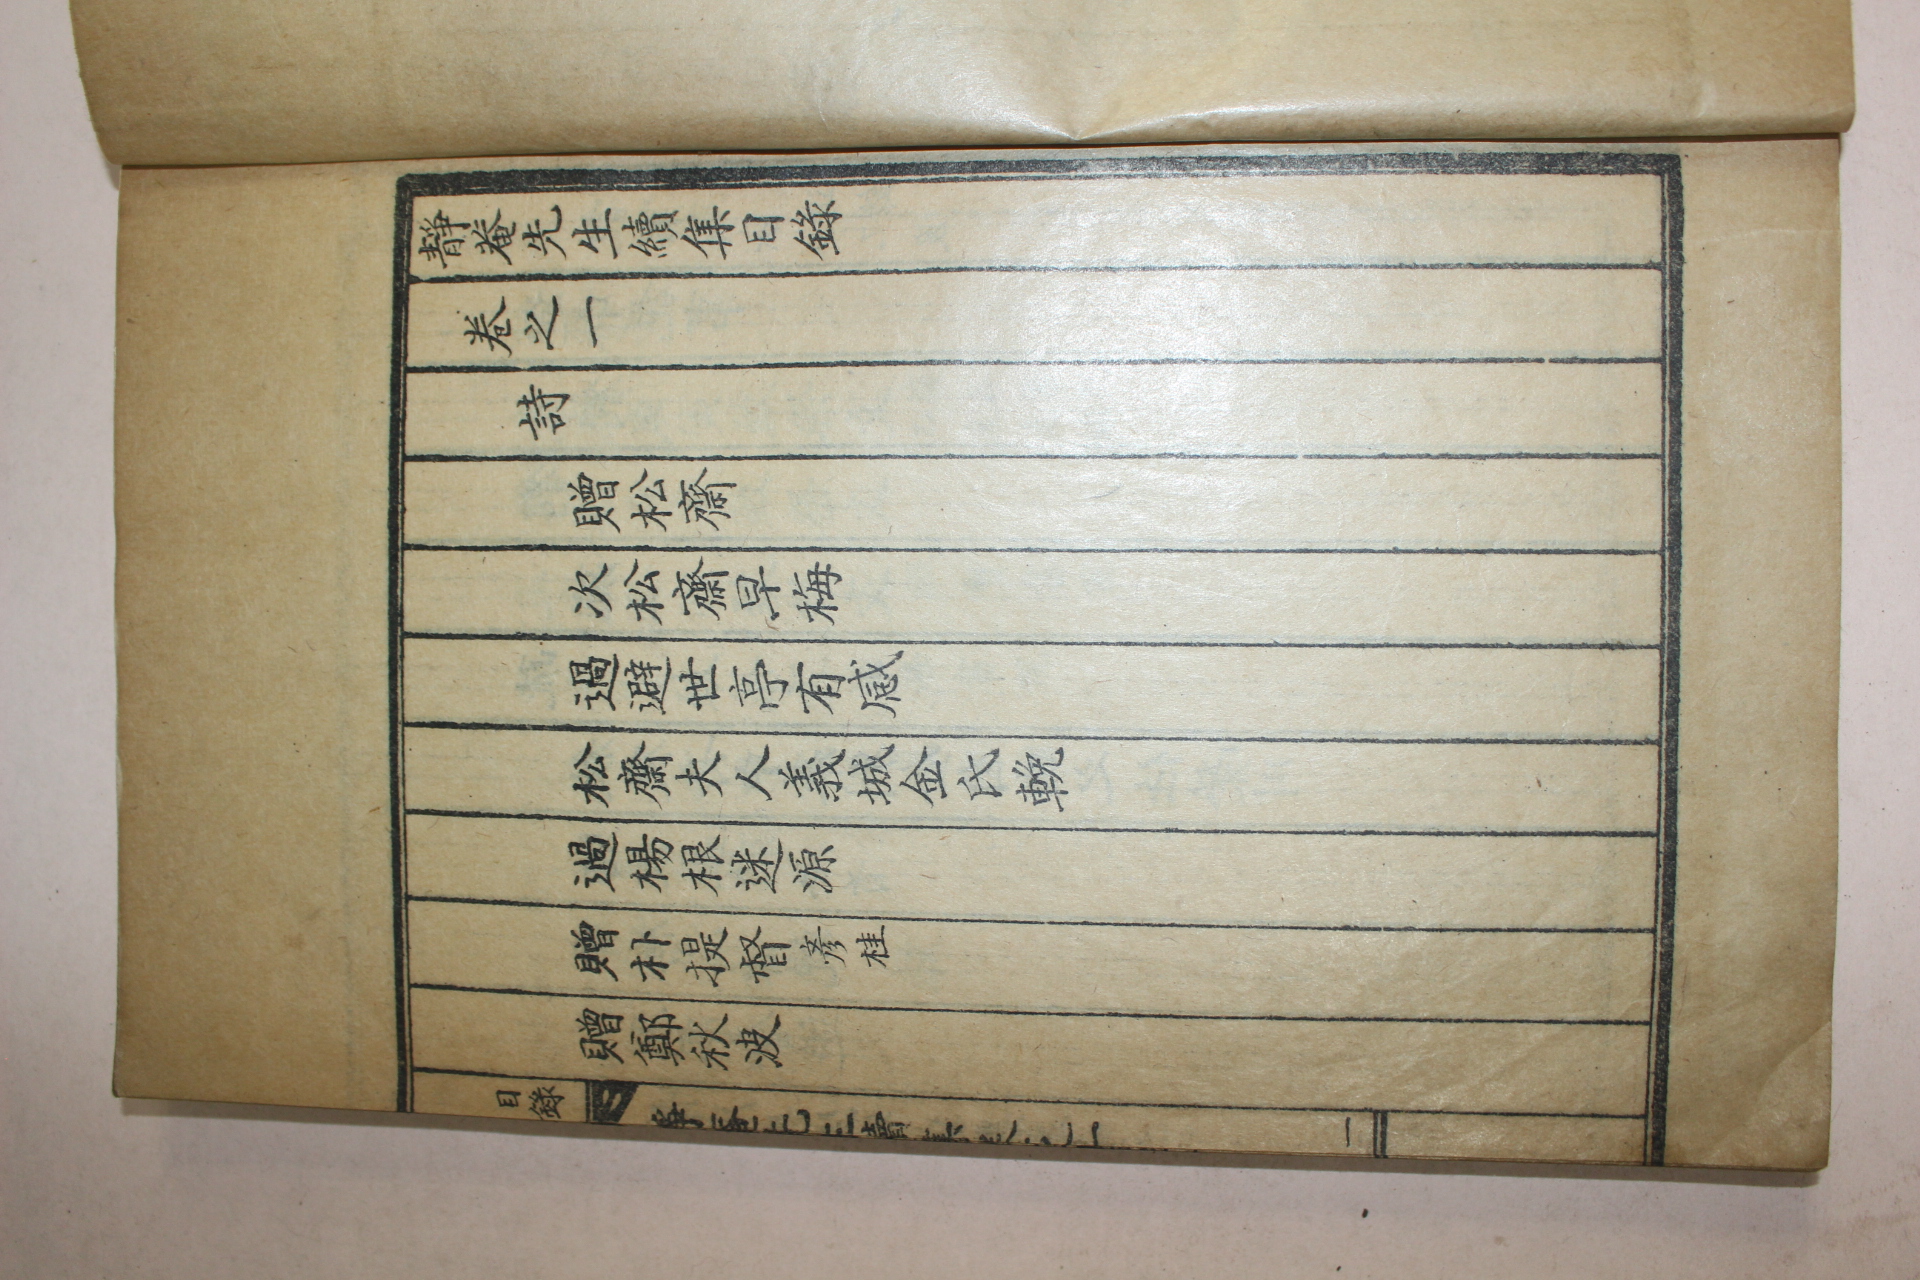 靜菴先生續集目錄
卷之一
詩
贈松齋
次松齋早梅
過避世亭有感
松齋夫人義城金氏輓
過楊根迷源
贈朴提督彦桂
贈鄭秋波
目錄
一